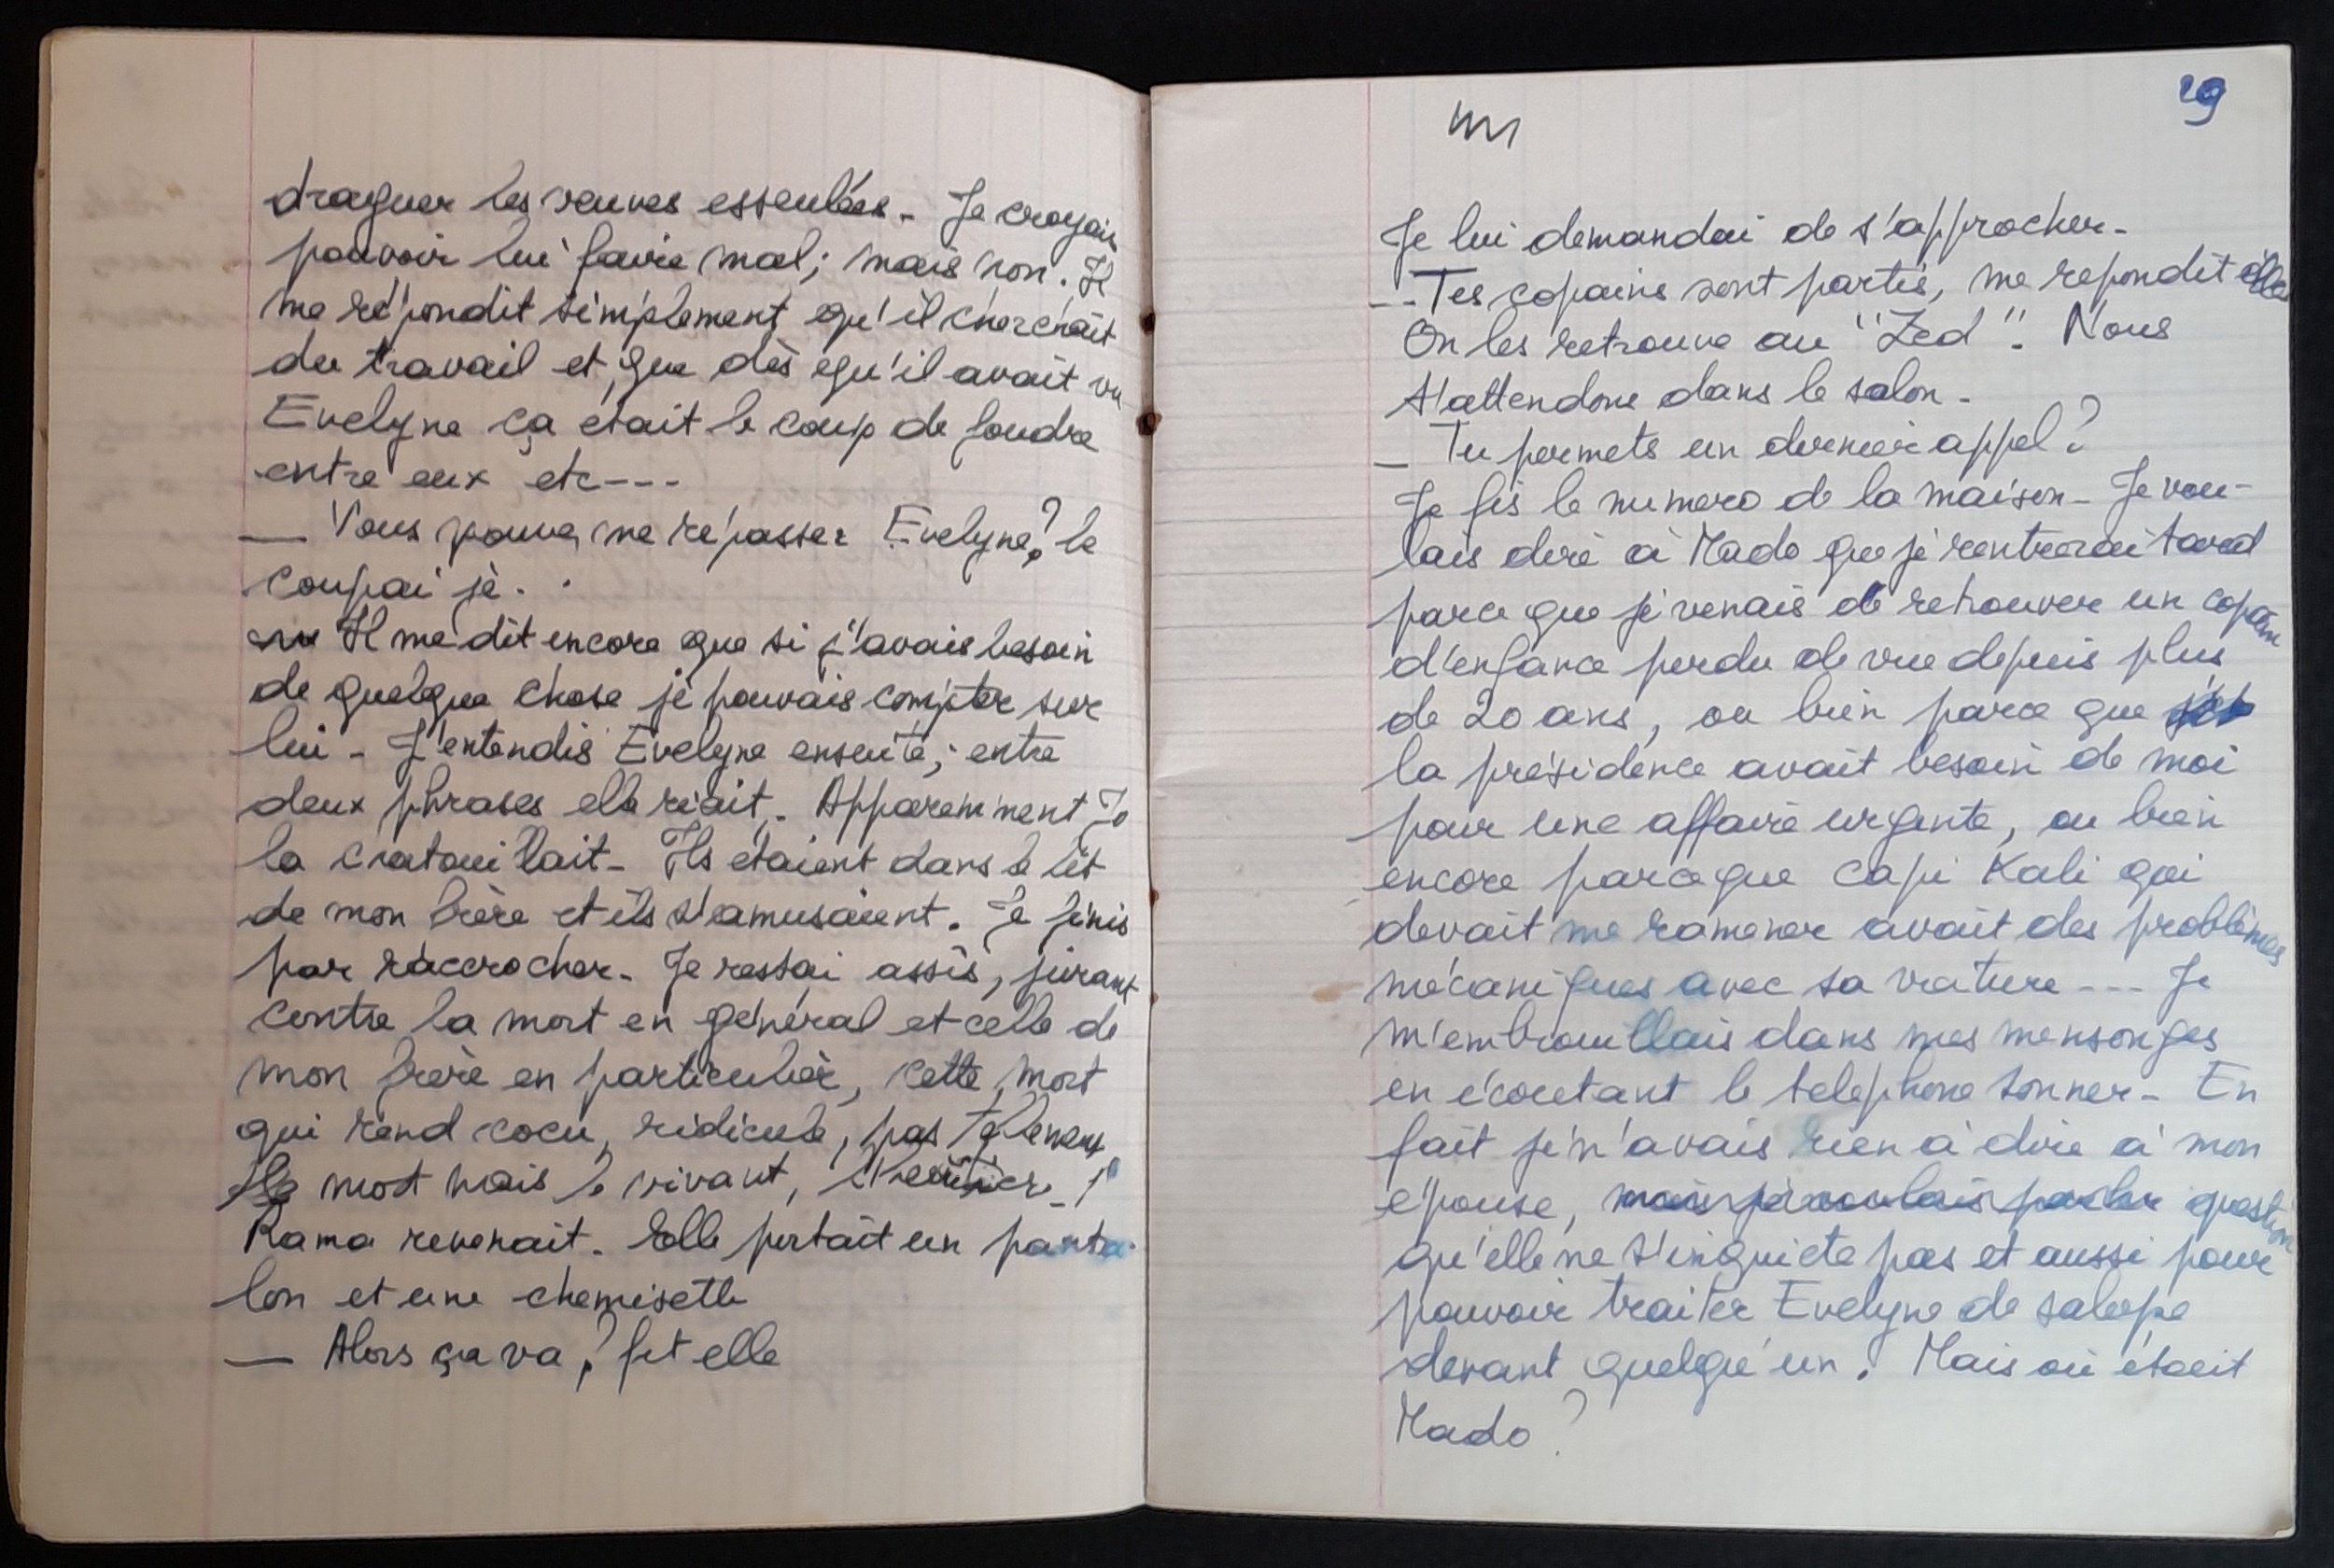 draguer les veuves esseulées. Je croyais
pouvoir lui faire mal; mais non. Il
me répondit simplement qu'il cherchait
du travail et que dès qu'il avait vu
Evelyne ça était le coup de foudre
entre eux etc---
— Vous pouvez me repasser Evelyne? le
coupai je.
Il me dit encore que si j'avais besoin
de quelque chose je pouvais compter sur
lui - J'entendis Evelyne ensuite; entre
deux phrases elle riait. Apparemment Jo
la chatouillait - Ils étaient dans le lit
de mon frère et ils s'amusaient. Je finis
par raccrocher. Je restai assis, jurant
contre la mort en général et celle de
mon frère en particulier, cette mort
qui rend cocu, ridicule, pas tellement
le mort mais le vivant,
Rama revenait. Elle portait un panta-
lon et une chemisette
— Alors ça va? fit elle
29
Je lui demandai de s'approcher-
— Tes copains sont partis, me repondit elle
On les retrouve au "Zed". Nous
t'attendons dans le salon-
— Tu permets un dernier appel?
Je fis le numero de la maison - Je vou-
lais dire à Mado que je rentrerai tard
parce que je venais de retrouver un copain
d'enfance perdu de vue depuis plus
de 20 ans, ou bien parce que
la présidence avait besoin de moi
pour une affaire urgente, ou bien
encore parce que Capi Kali qui
devait me ramener avait des problèmes
mécaniques avec sa voiture --- Je
m'embrouillais dans mes mensonges
en écoutant le telephone sonner - En
fait je n'avais rien à dire à mon
épouse, mais je voulais parler question
qu'elle ne s'inquiete pas et aussi pour
pouvoir traiter Evelyne de salope
devant quelqu'un. Mais où était
Mado?